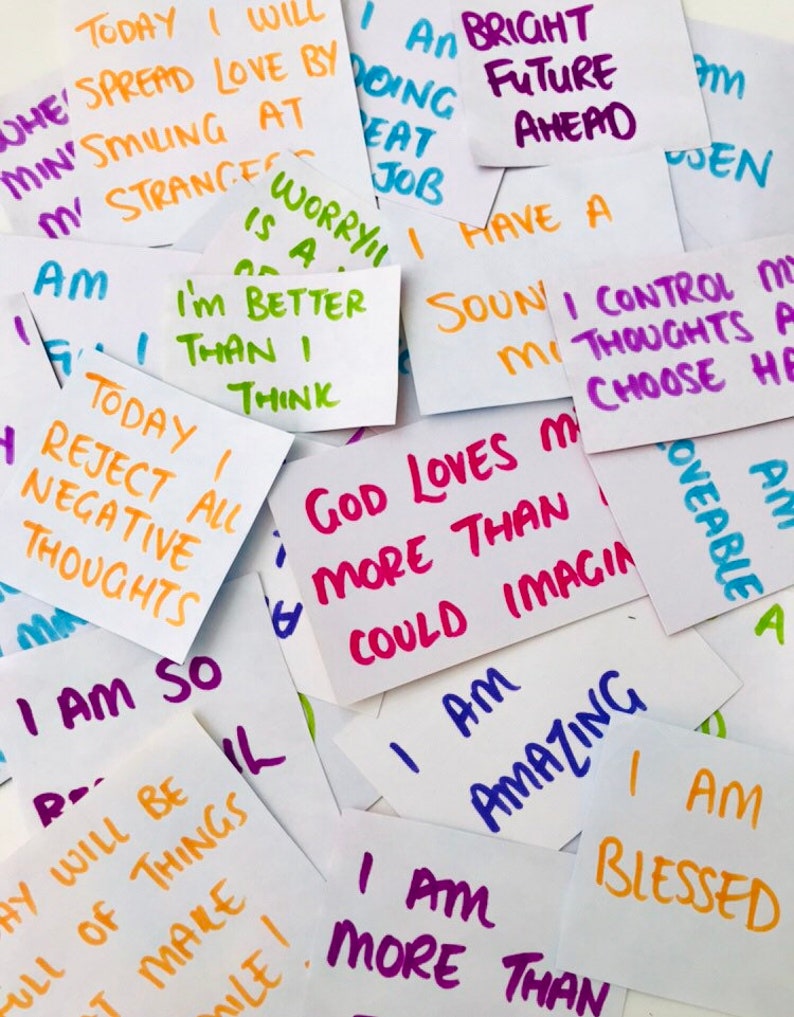 TODAY I WILL
SPREAD LOVE BY
SMILING AT
STRANGERS
I AM
DOING
JOB
BRIGHT
FUTURE
AHEAD
AM
WORRYI
IS A
I HAVE A
SOUN
AM
I'M BETTER
THAN I
THINK
I CONTROL MY
THOUGHTS A
CHOOSE HA
TODAY I
REJECT ALL
NEGATIVE
THOUGHTS
GOD LOVES M
MORE THAN
COULD IMAGIN
AM
LOVEABLE
I AM SO
I AM
AMAZING
I AM
BLESSED
AY WILL BE
FULL OF THINGS
MAKE
MILE!
I AM
MORE THAN